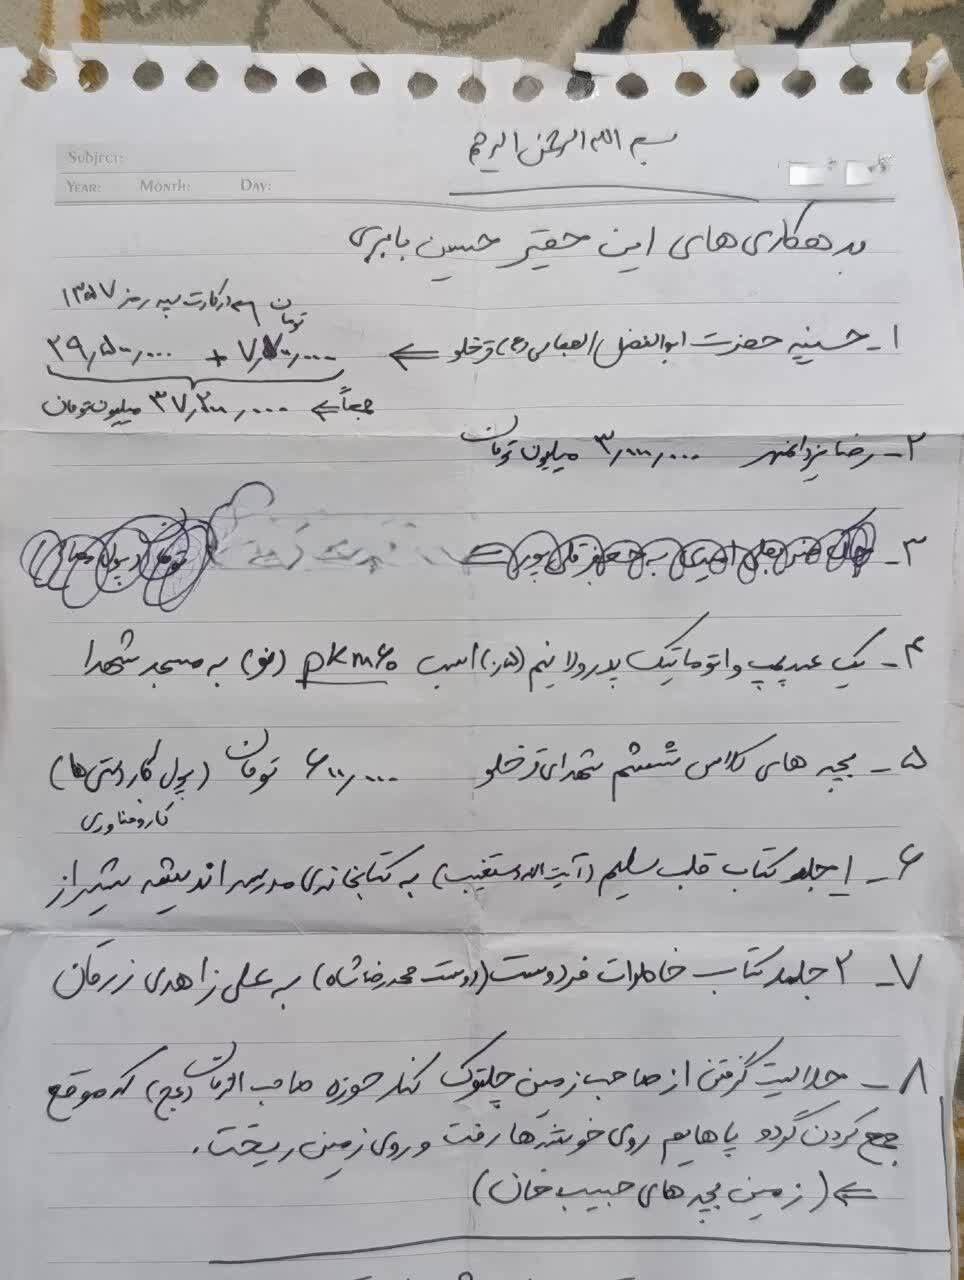 بسم الله الرحمن الرحیم
Subject:
YEAR: MONTH: DAY:
بدهکاری های این حقیر حسین بابری
۱ـ حسینیه حضرت ابوالفضل العباس (ع) قرخلو ⇐ ۷,۷۰۰,۰۰۰ تومان + ۲۹,۵۰۰,۰۰۰
در کارت سپه رمز ۱۳۵۷
جمعاً ⇐ ۳۷,۲۰۰,۰۰۰ میلیون تومان
۲ـ رضا یزدانمهر ۳,۰۰۰,۰۰۰ میلیون تومان
۳ـ
۴ـ یک عدد پمپ واتوماتیک پدرولا نیم (۰/۵) اسب pkm۶۰ (نو) به مسجد شهدا
۵ـ بچه های کلاس ششم شهدای قرخلو ۶۰۰,۰۰۰ تومان (پول کاردستی ها)
کاروفناوری
۶ـ ۱ جلد کتاب قلب سلیم (آیت الله دستغیب) به کتابخانه ی مدرسه اندیشه شیراز
۷ـ ۲ جلد کتاب خاطرات فردوست (دوست محمدرضا شاه) به علی زاهدی زرقان
۸ـ حلالیت گرفتن از صاحب زمین چلتوک کنار حوزه صاحب الزمان (عج) که موقع
جمع کردن گردو پاهایم روی خوشه ها رفت و روی زمین ریخت.
⇐ (زمین بچه های حبیب خان)